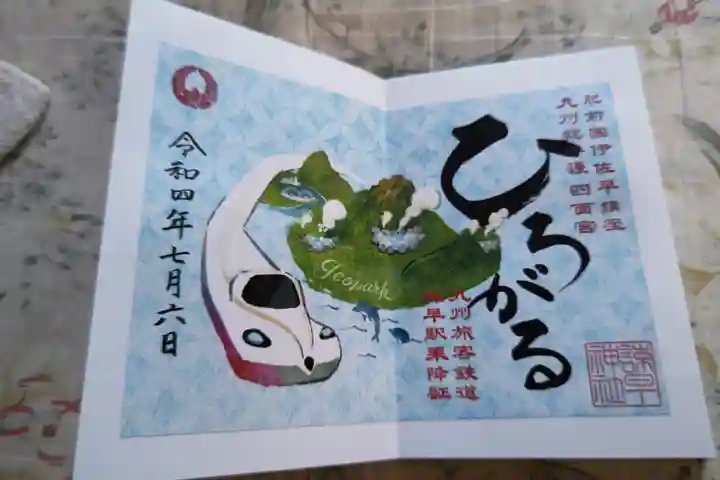 肥前國伊佐早鎮守
九州総守護四面宮
ひろがる
諫早
神社
九州旅客鉄道
諫早駅乗降証
Geopark
令和四年七月六日